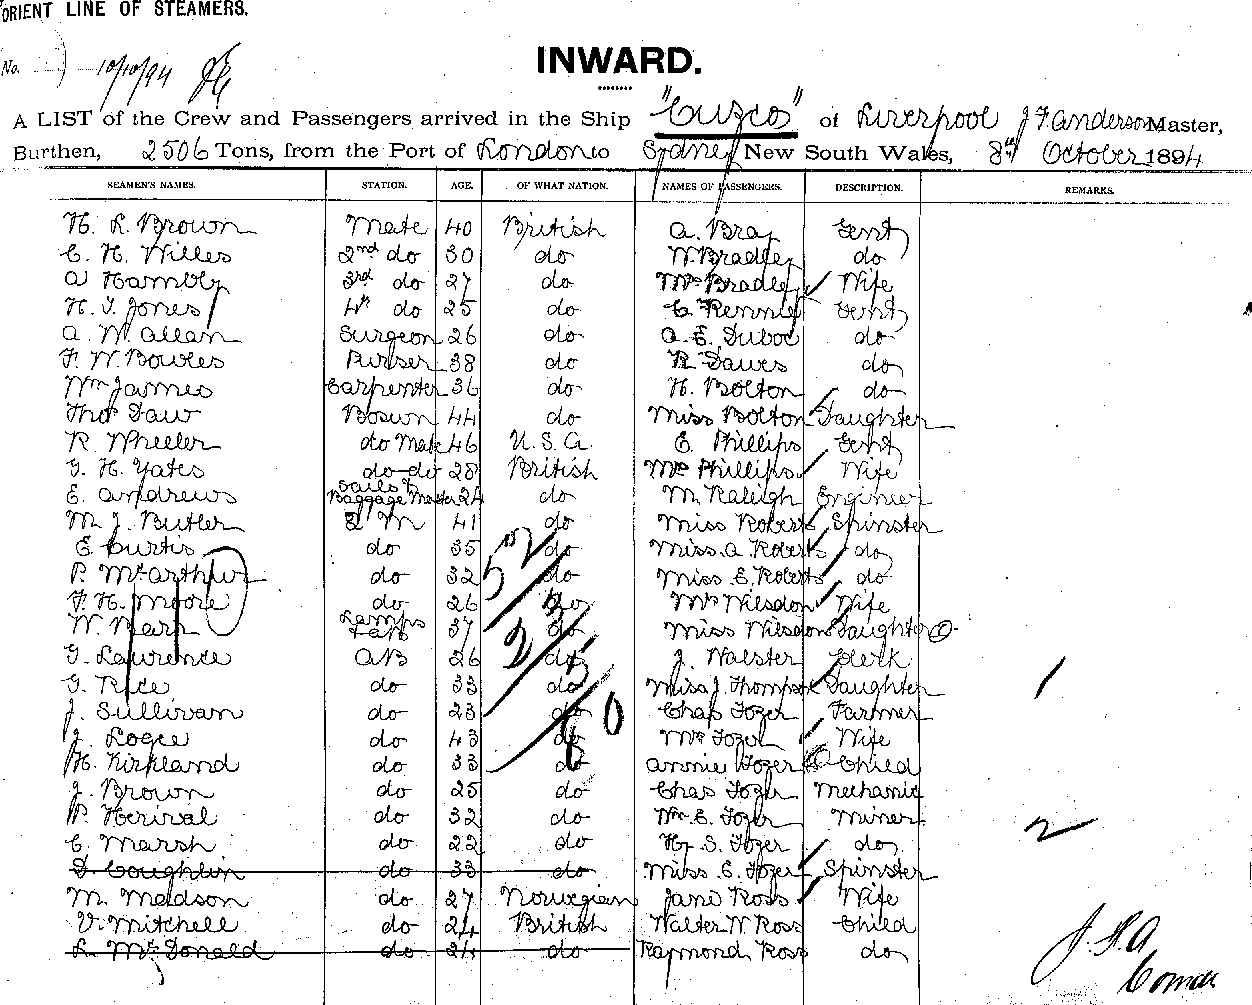 ORIENT LINE OF STEAMERS.
No. 10/10/94
INWARD.
A LIST of the Crew and Passengers arrived in the Ship "Cuzco" of Liverpool J F Anderson Master,
Burthen, 2506 Tons, from the Port of London to Sydney New South Wales, 8th October 1894
SEAMEN'S NAMES. STATION. AGE. OF WHAT NATION. NAMES OF PASSENGERS. DESCRIPTION. REMARKS.
H. L. Brown Mate 40 British A. Bray Gent
C. H. Willes 2nd do 30 do W Bradley do
A Hambly 3rd do 27 do Mrs Bradley Wife
H. G. Jones 4th do 25 do C. Kenny Gent
A. W. Allan Surgeon 26 do A. E. Duboc do
F. W. Bowles Purser 38 do R. Dawes do
Wm James Carpenter 36 do H. Bolton do
Thos Daw Bosun 44 do Miss Bolton Daughter
R Wheeler do Mate 46 U. S. A. E. Phillips Gent
G. H. Yates do do 28 British Mrs Phillips Wife
E. Andrews Sails & Baggage Master 24 do M. Raleigh Engineer
M. J. Butler Q M 41 do Miss Roberts Spinster
E Curtis do 35 do Miss A. Roberts do
P. McArthur do 32 do Miss E. Roberts do
F. H. Moore do 26 do Mrs Wilsdon Wife
W. Marr Lamps 37 do Miss Wilsdon Daughter
G. Lawrence AB 26 do J. Walster Clerk
G. Rice do 33 do Miss J. Thompson Daughter 1
J. Sullivan do 23 do Chas Tozer Farmer
J. Logie do 43 do Mrs Tozer Wife
H. Kirkland do 33 do Annie Tozer Child
J. Brown do 25 do Chas Tozer Mechanic
P. Herival do 32 do Wm. E. Tozer Miner 2
C. Marsh do 22 do Hy. S. Tozer do
D. Coughlin do 33 do Miss E. Tozer Spinster
M. Madson do 27 Norwegian Jane Ross Wife
V. Mitchell do 24 British Walter W Ross Child
L. McDonald do 24 do Raymond Ross do
52
23
60
J. F. A.